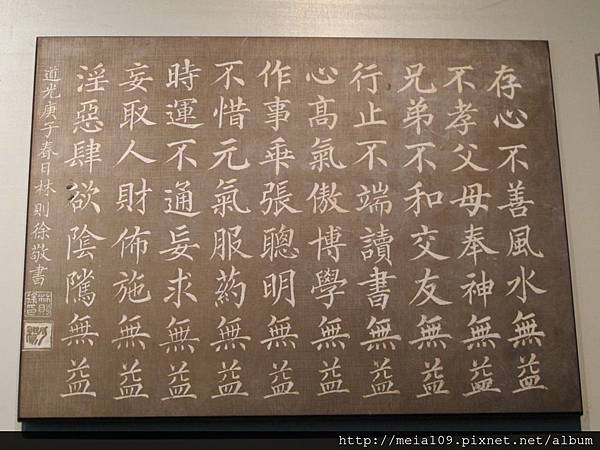 存心不善風水無益
不孝父母奉神無益
兄弟不和交友無益
行止不端讀書無益
心高氣傲博學無益
作事乖張聰明無益
不惜元氣服葯無益
時運不通妄求無益
妄取人財佈施無益
淫惡肆欲陰騭無益
道光庚子春日林則徐敬書
http://meia109.pixnet.net/album